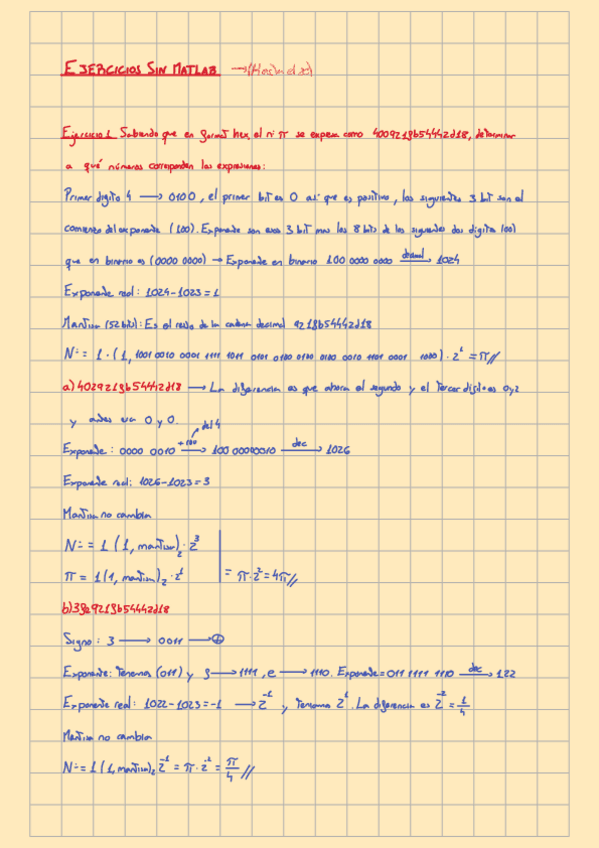 EJERCICIOS SIN MATLAB →
Ejercicio 1 Sabiendo que en format hex, el nº π se expresa como 400921fb54442d18, determinar
a qué números corresponden las expresiones:
Primer digito 4 → 0100, el primer bit es 0 asi que es positivo, los siguientes 3 bit son el
comienzo del exponente (100). Exponente son esos 3 bit mas los 8 bits de los siguientes dos digitos (00)
que en binario es (0000 0000) → Exponente en binario 100 0000 0000 decimal → 1024
Exponente real: 1024-1023 = 1
Mantisa (52 bits): Es el resto de la cadena decimal 921fb54442d18
Nº = 1 · (1, 1001 0010 0001 1111 1011 0101 0100 0100 0100 0010 1101 0001 1000) · 2¹ = π//
a) 402921fb54442d18 → La diferencia es que ahora el segundo y el tercer digito es 0 y 2
y antes era 0 y 0.
Exponente: 0000 0010 +100 del 4 → 100 00000010 dec → 1026
Exponente real: 1026-1023 = 3
Mantisa no cambia
Nº = 1 (1, mantisa)₂ · 2³
π = 1 (1, mantisa)₂ · 2¹ = π · 2² = 4π//
b) 3fe921fb54442d18
Signo: 3 → 0011 → ⊕
Exponente: Tenemos (011) y f → 1111, e → 1110. Exponente = 011 1111 1110 dec → 122
Exponente real: 1022-1023 = -1 → 2⁻¹ y teniamos 2¹. La diferencia es 2⁻² = 1/4
Mantisa no cambia
Nº = 1 (1, mantisa)₂ 2⁻¹ = π · 2⁻² = π/4 //